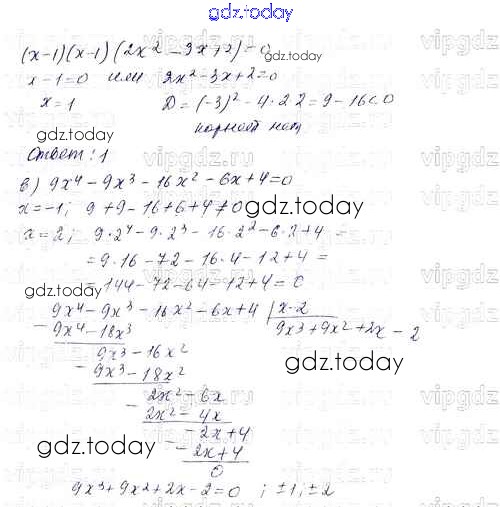 gdz.today
(x-1)(x-1)(2x² - 3x+2)=0
gdz.today
x-1=0 или 2x²-3x+2=0
x=1 D=(-3)²-4·2·2=9-16<0
gdz.today
корней нет
Ответ: 1
в) 9x⁴-9x³-16x²-6x+4=0
x=-1; 9+9-16+6+4≠0
gdz.today
x=2; 9·2⁴-9·2³-16·2²-6·2+4=
=9·16-72-16·4-12+4=
=144-72-64-12+4=0
gdz.today
9x⁴-9x³-16x²-6x+4 | x-2
- 9x⁴-18x³ 9x³+9x²+2x-2
9x³-16x²
- 9x³-18x²
gdz.today
2x²-6x
- 2x²-4x
-2x+4
gdz.today
- -2x+4
0
9x³+9x²+2x-2=0 ; ±1; ±2
vipgdz.ru